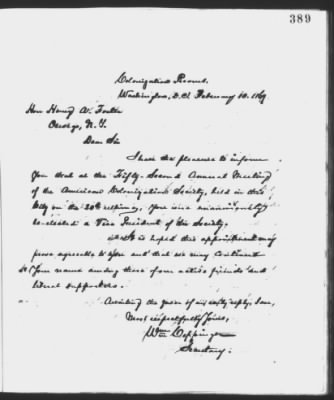 389
Colonization Rooms.
Washington, D.C. February 10. 1869.
Hon Henry A. Foster
Oswego, N.Y.
Dear Sir
I have the pleasure to inform
you that at the Fifty-Second Annual Meeting
of the American Colonization Society, held in this
City on the 20th ultimo, you were unanimously
re-elected a Vice President of the Society.
It is hoped this appointment may
prove agreeable to you and that we may continue
your name among those from active friends and
liberal supporters.
Awaiting the favor of an early reply, I am,
Most respectfully Yours,
Wm Coppinger
Secretary.